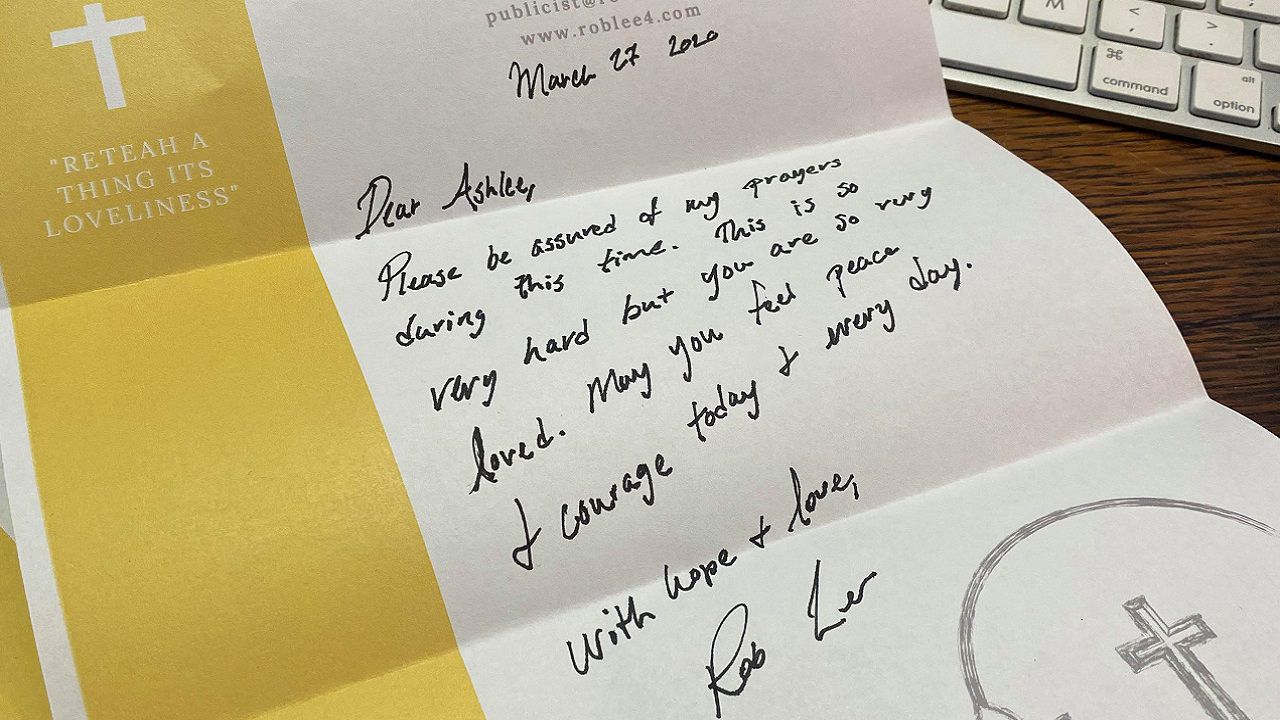 www.roblee4.com
March 27 2020
"RETEAH A
THING ITS
LOVELINESS"
Dear Ashlee,
Please be assured of my prayers
during this time. This is so
very hard but you are so very
loved. May you feel peace
& courage today & every day.
With hope & love,
Rob Lee
M
<
,
>
.
⌘
command
alt
option